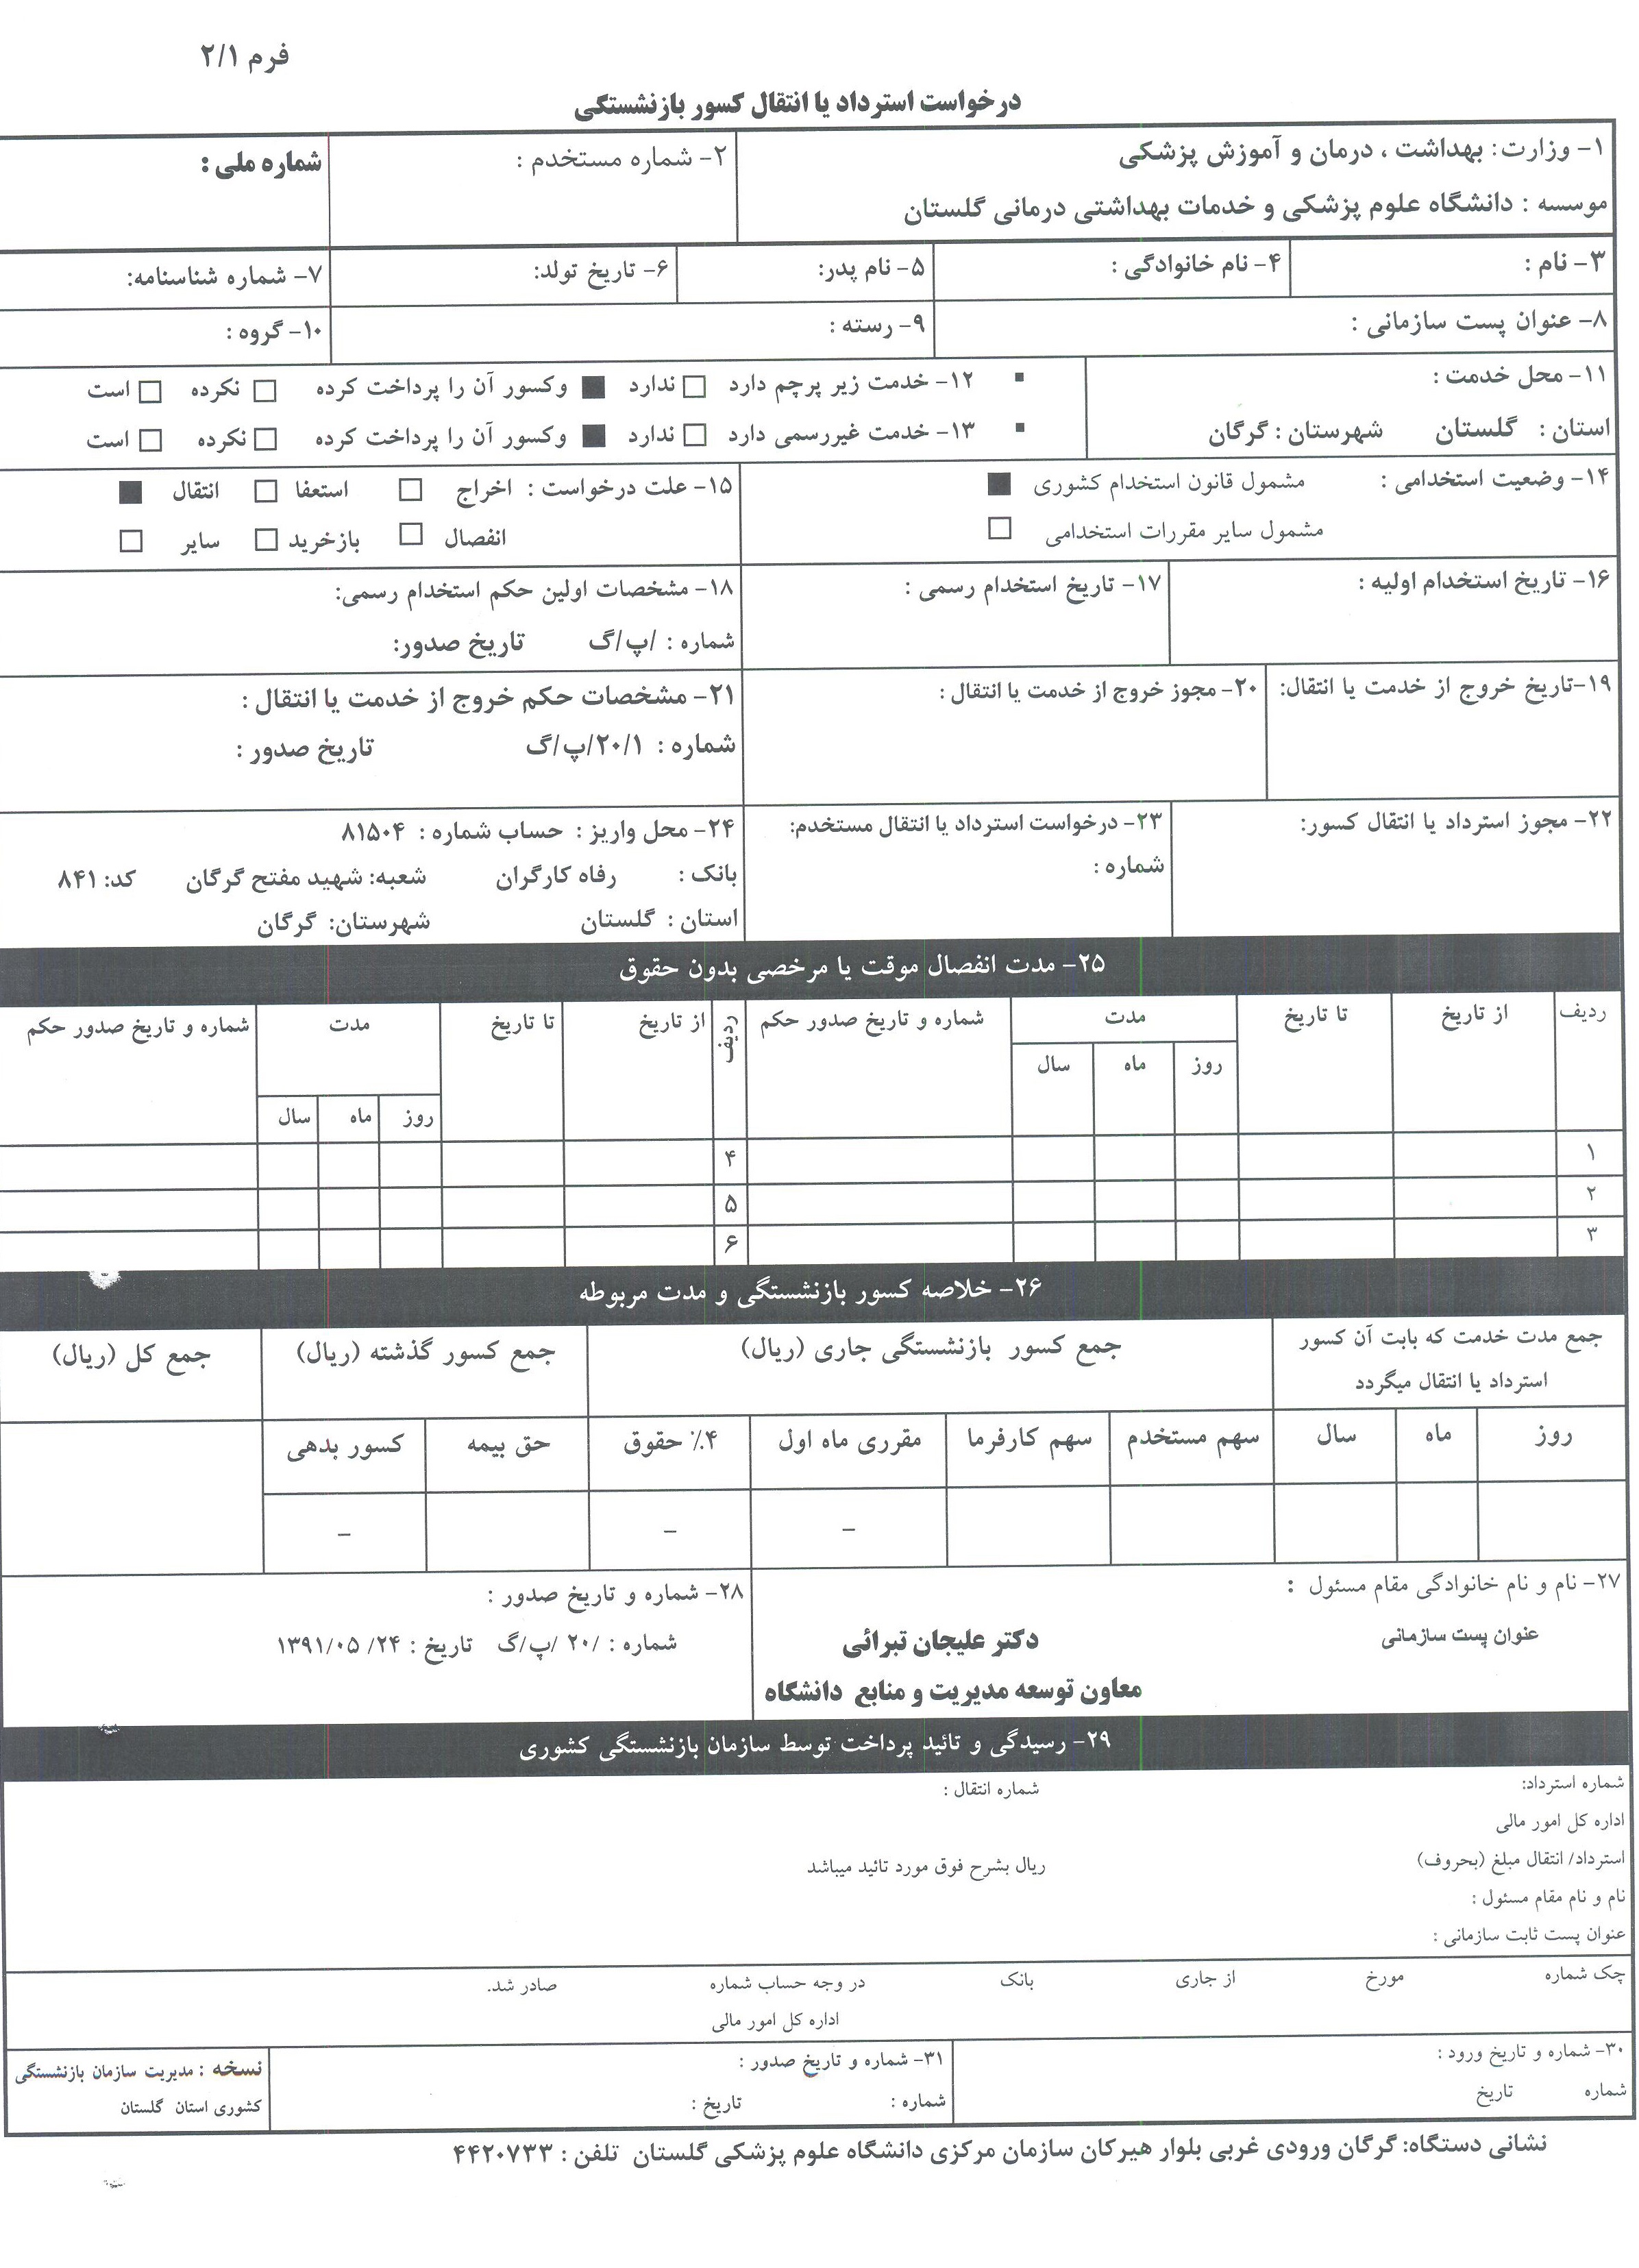 فرم ۲/۱
درخواست استرداد یا انتقال کسور بازنشستگی
۱- وزارت: بهداشت ، درمان و آموزش پزشکی
موسسه : دانشگاه علوم پزشکی و خدمات بهداشتی درمانی گلستان
۲- شماره مستخدم :
شماره ملی :
۳- نام :
۴- نام خانوادگی :
۵- نام پدر:
۶- تاریخ تولد:
۷- شماره شناسنامه:
۸- عنوان پست سازمانی :
۹- رسته :
۱۰- گروه :
۱۱- محل خدمت :
استان : گلستان شهرستان : گرگان
▪ ۱۲- خدمت زیر پرچم دارد □ ندارد ■ وکسور آن را پرداخت کرده □ نکرده □ است
▪ ۱۳- خدمت غیررسمی دارد □ ندارد ■ وکسور آن را پرداخت کرده □ نکرده □ است
۱۴- وضعیت استخدامی : مشمول قانون استخدام کشوری ■
مشمول سایر مقررات استخدامی □
۱۵- علت درخواست : اخراج □ استعفا □ انتقال ■
انفصال □ بازخرید □ سایر □
۱۶- تاریخ استخدام اولیه :
۱۷- تاریخ استخدام رسمی :
۱۸- مشخصات اولین حکم استخدام رسمی:
شماره : /پ/گ تاریخ صدور:
۱۹-تاریخ خروج از خدمت یا انتقال:
۲۰- مجوز خروج از خدمت یا انتقال :
۲۱- مشخصات حکم خروج از خدمت یا انتقال :
شماره : ۲۰/۱/پ/گ تاریخ صدور :
۲۲- مجوز استرداد یا انتقال کسور:
۲۳- درخواست استرداد یا انتقال مستخدم:
شماره :
۲۴- محل واریز : حساب شماره : ۸۱۵۰۴
بانک : رفاه کارگران شعبه: شهید مفتح گرگان کد: ۸۴۱
استان : گلستان شهرستان: گرگان
۲۵- مدت انفصال موقت یا مرخصی بدون حقوق
ردیف از تاریخ تا تاریخ مدت شماره و تاریخ صدور حکم ردیف از تاریخ تا تاریخ مدت شماره و تاریخ صدور حکم
روز ماه سال روز ماه سال
۱ ۴
۲ ۵
۳ ۶
۲۶- خلاصه کسور بازنشستگی و مدت مربوطه
جمع مدت خدمت که بابت آن کسور
استرداد یا انتقال میگردد
جمع کسور بازنشستگی جاری (ریال)
جمع کسور گذشته (ریال)
جمع کل (ریال)
روز ماه سال سهم مستخدم سهم کارفرما مقرری ماه اول ۴٪ حقوق حق بیمه کسور بدهی
– – –
۲۷- نام و نام خانوادگی مقام مسئول :
عنوان پست سازمانی دکتر علیجان تبرائی
معاون توسعه مدیریت و منابع دانشگاه
۲۸- شماره و تاریخ صدور :
شماره : /۲۰ /پ/گ تاریخ : ۲۴/ ۰۵/ ۱۳۹۱
۲۹- رسیدگی و تائید پرداخت توسط سازمان بازنشستگی کشوری
شماره استرداد: شماره انتقال :
اداره کل امور مالی
استرداد/ انتقال مبلغ (بحروف) ریال بشرح فوق مورد تائید میباشد
نام و نام مقام مسئول :
عنوان پست ثابت سازمانی :
چک شماره مورخ از جاری بانک در وجه حساب شماره صادر شد.
اداره کل امور مالی
۳۰- شماره و تاریخ ورود :
شماره تاریخ
۳۱- شماره و تاریخ صدور :
شماره : تاریخ :
نسخه : مدیریت سازمان بازنشستگی
کشوری استان گلستان
نشانی دستگاه: گرگان ورودی غربی بلوار هیرکان سازمان مرکزی دانشگاه علوم پزشکی گلستان تلفن : ۴۴۲۰۷۳۳